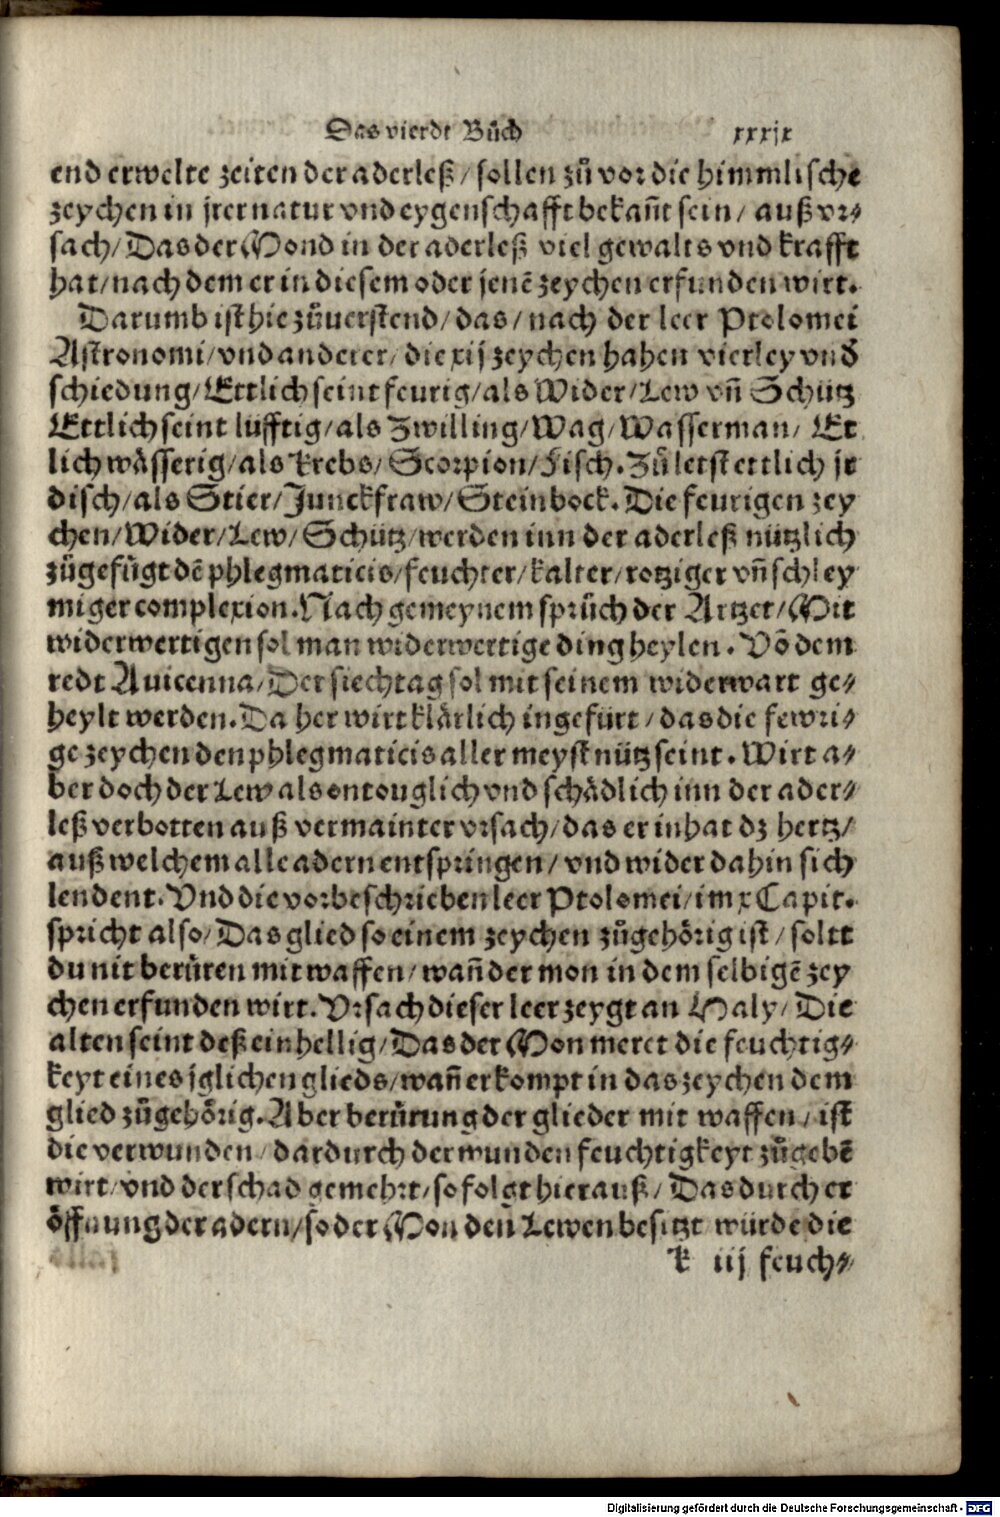 Das vierdt Bůch xxxix
end erwelte zeiten der aderleß / sollen zů vor die himmlische
zeychen in jrer natur vnd eygenschafft bekañt sein / auß vr⸗
sach / Das der Mond in der aderleß viel gewalts vnd krafft
hat / nach dem er in diesem oder jenē zeychen erfunden wirt.
Darumb ist hie zůuerstend / das / nach der leer Ptolomei
Astronomi / vnd anderer / die xij zeychen hahen vierley vnd̕
schiedung / Ettlich seint feurig / als Wider / Lew vñ Schütz
Ettlich seint lüfftig / als Zwilling / Wag / Wasserman / Et
lich wässerig / als Krebs / Scorpion / Fisch. Zů letst ettlich jr
disch / als Stier / Junckfraw / Steinbock. Die feurigen zey
chen / Wider / Lew / Schütz / werden inn der aderleß nützlich
zůgefůgt dē phlegmaticis / feuchter / kalter / rotziger vñ schley
miger complexion. Nach gemeynem sprůch der Artzet / Mit
widerwertigen sol man widerwertige ding heylen. Vō dem
redt Auicenna / Der siechtag sol mit seinem widerwart ge⸗
heylt werden. Da her wirt klärlich ingefürt / das die fewri⸗
ge zeychen den phlegmaticis aller meyst nütz seint. Wirt a⸗
ber doch der Lew als ontouglich vnd schädlich inn der ader⸗
leß verbotten auß vermainter vrsach / das er inhat dz hertz /
auß welchem alle adern entspringen / vnd wider dahin sich
lendent. Vnd die vorbeschrieben leer Ptolomei / im x Capit.
spricht also / Das glied so einem zeychen zůgehörig ist / soltt
du nit berůren mit waffen / wañ der mon in dem selbigē zey
chen erfunden wirt. Vrsach dieser leer zeygt an Haly / Die
alten seint deß einhellig / Das der Mon meret die feuchtig⸗
keyt eines jglichen glieds / wañ er kompt in das zeychen dem
glied zůgehörig. Aber berůrung der glieder mit waffen / ist
die verwunden / dardurch der wunden feuchtigkeyt zůgebē
wirt / vnd der schad gemehrt / so folgt hierauß / Das durch er
öffnung der adern / so der Mon den Lewen besitzt würde die
k iij feuch⸗
Digitalisierung gefördert durch die Deutsche Forschungsgemeinschaft - DFG